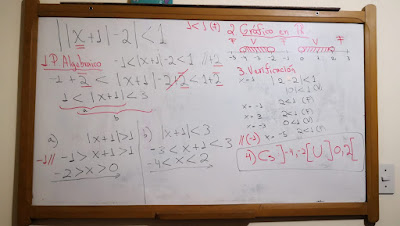 ||x+1|-2|<1
1 P. Algebraico
-1<|x+1|-2<1 //+2
-1+2<|x+1|-2+2<1+2
1<|x+1|<3
a
b
a) |x+1|>1
-1// -1>x+1>1
-2>x>0
b) |x+1|<3
-3<x+1<3
-4<x<2
1<1 (F)
2 Gráfico en IR.
F V F V F
-5 -4 -3 -2 -1 0 1 2 3
3. Verificación
|2-2|<1
|0|<1(V)
x=-1 2<1(F)
x=3 2<1(F)
x=-3 0<1(V)
//(-2) x=-5 2<1(F)
4) Cs=]-4,-2[U]0,2[